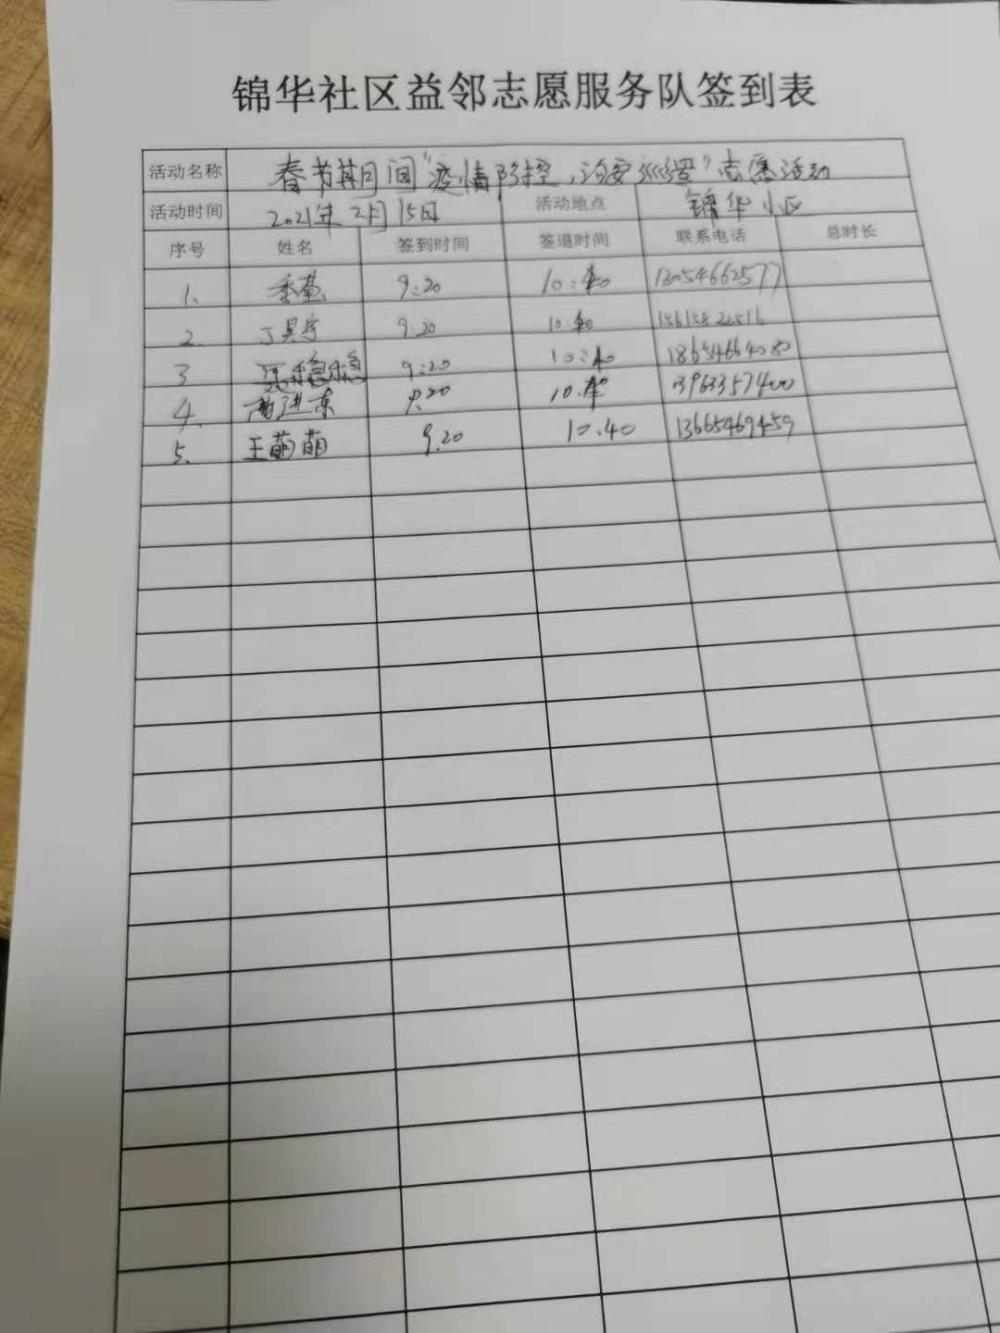 锦华社区益邻志愿服务队签到表
活动名称 春节期间“疫情防控,治安巡逻”志愿活动
活动时间 2021年2月15日 活动地点 锦华小区
序号 姓名 签到时间 签退时间 联系电话 总时长
1、 9:20 10:40 13054662577
2、 9.20 10:40
3 9:20 10:40 18654664080
4、 9.20 10.40 13963357400
5、 王萌萌 9.20 10.40 13665469459